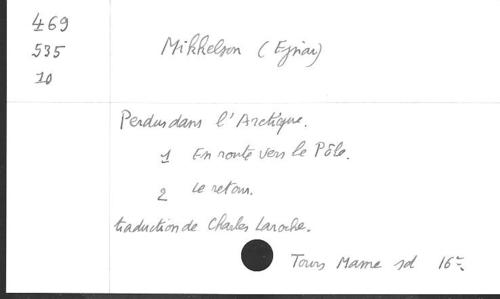 469
535
10
Mikkelson (Ejnar)
Perdus dans l'Arctique.
1 En route vers le Pôle.
2 Le retour.
traduction de Charles Laroche.
Tours Mame sd 16-